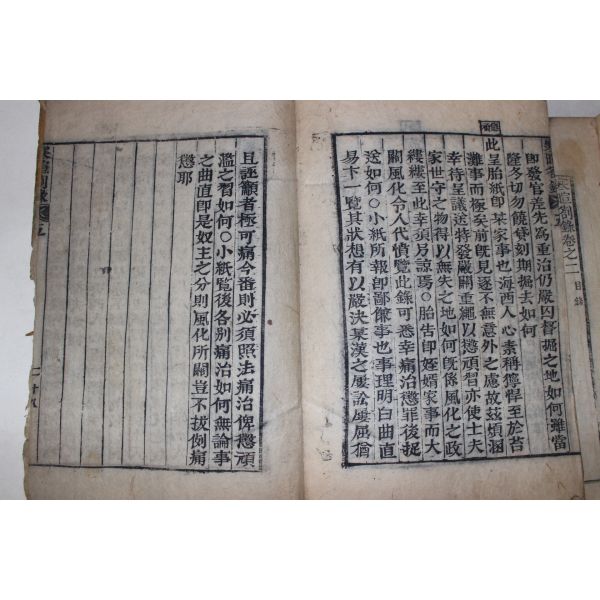 即發官差先爲重治仍嚴囚督掘之地如何雖當
隆冬切勿饒貸刻期掘去如何
此呈胎紙卽某家事也海西人心素稱獷悍至於苔
灘事而極矣前旣見逐不無意外之慮故玆煩涸
幸待呈議送特發嚴關重繩以懲頑習亦使士夫
家世守之物得以無失之地如何旣係風化之政
縷縷至此幸須另諒焉○胎告卽姪婿家事而大
關風化令人代憤覽此錄可悉幸痛治懲罪後捉
送如何○小紙所報卽鄙傔事也事理明白曲直
易卞一覽其狀想有以嚴決某漢之屢訟屢屈猶
且誣籲者極可痛今番則必須照法痛治俾懲頑
濫之習如何○小紙覽後各別痛治如何無論事
之曲直卽是奴主之分則風化所關豈不拔例痛
懲耶
卷之二
目錄